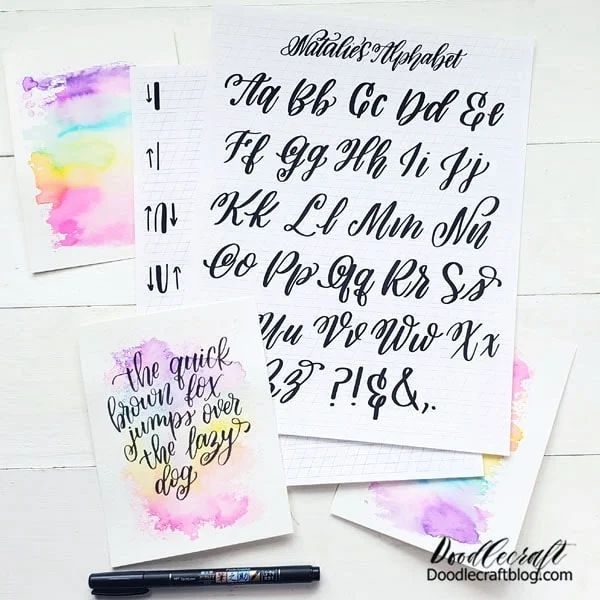 Natalie's Alphabet
Aa Bb Cc Dd Ee
Ff Gg Hh Ii Jj
Kk Ll Mm Nn
Oo Pp Qq Rr Ss
Uu Vv Ww Xx
Zz ?!&&,.
the quick
brown fox
jumps over
the lazy
dog
Doodlecraft
Doodlecraftblog.com